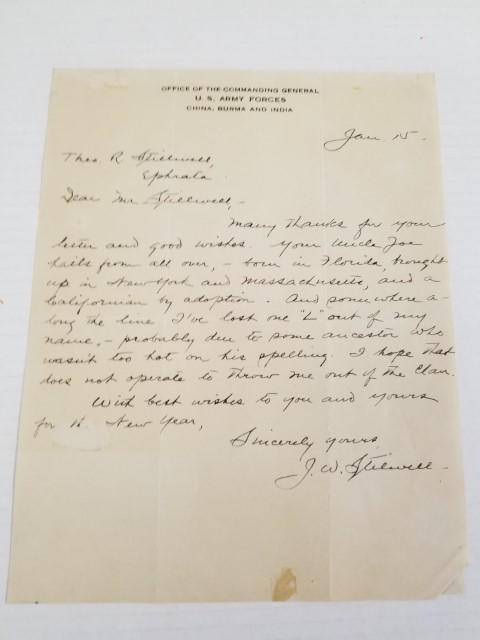 OFFICE OF THE COMMANDING GENERAL
U. S. ARMY FORCES
CHINA, BURMA AND INDIA
Jan. 15 -
Theo. R Stillwell,
Ephrata
Dear Mr Stillwell, -
Many thanks for your
letter and good wishes. Your Uncle Joe
hails from all over, - born in Florida, brought
up in New York and Massachusetts, and a
Californian by adoption. And somewhere a-
long the line I've lost one "L" out of my
name, - probably due to some ancestor who
wasn't too hot on his spelling. I hope that
does not operate to throw me out of the Clan.
With best wishes to you and yours
for th New Year,
Sincerely yours,
J. W. Stilwell -